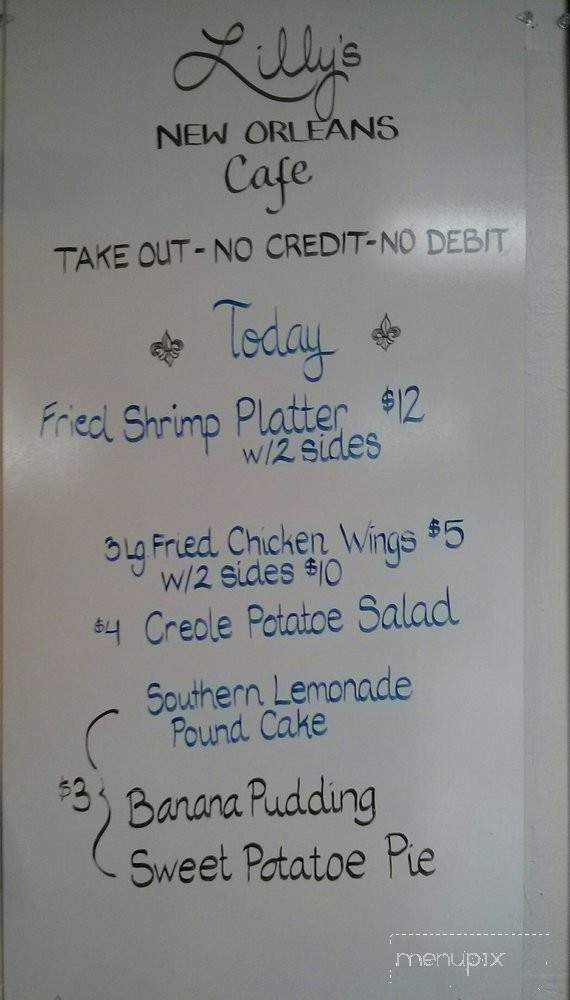 Lilly's
NEW ORLEANS
Cafe
TAKE OUT - NO CREDIT - NO DEBIT
Today
Fried Shrimp Platter $12
w/2 sides
3 Lg. Fried Chicken Wings $5
w/2 sides $10
$4 Creole Potatoe Salad
Southern Lemonade
Pound Cake
$3 Banana Pudding
Sweet Potatoe Pie
menupix